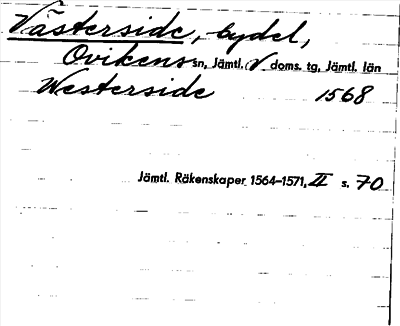 Västerside, bydel,
Ovikens sn, Jämtl. V doms. tg, Jämtl. län
Westerside 1568
Jämtl. Räkenskaper 1564–1571, II s. 70